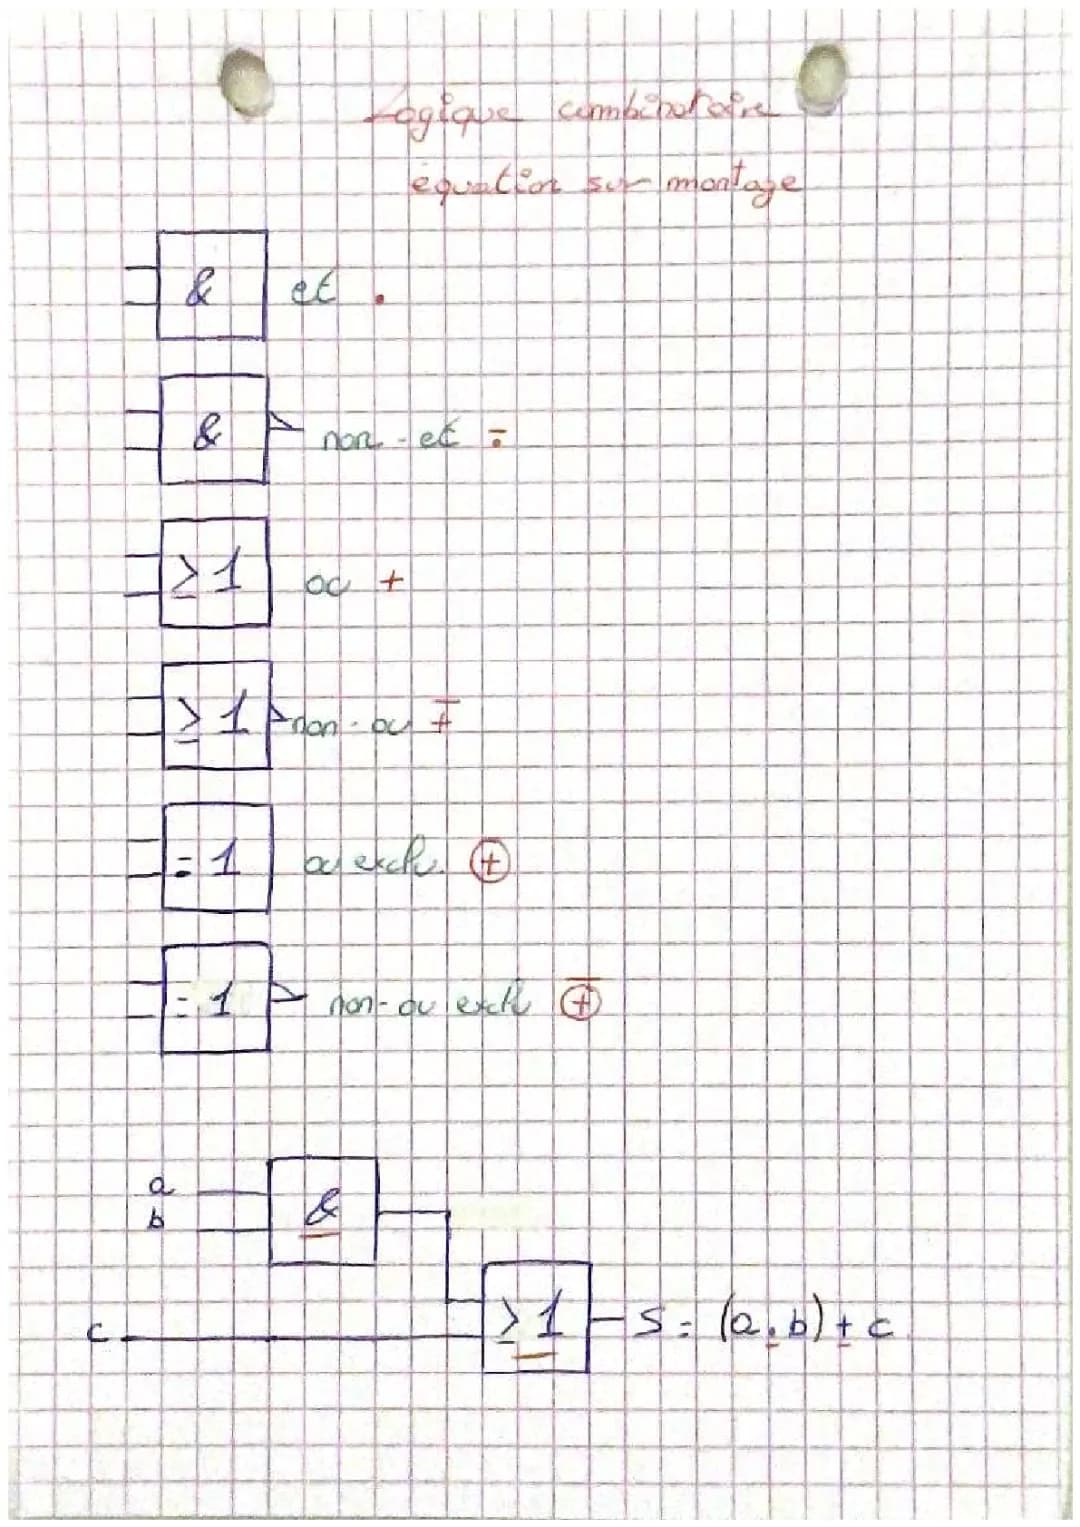 Logique combinatoire
équation sur montage
& et .
& non-et -.
≥1 ou +
≥1 non-ou +̅
=1 ou exclu. ⊕
=1 non-ou exclu ⊕̅
a
b
&
c ≥1 S = (a.b)+c